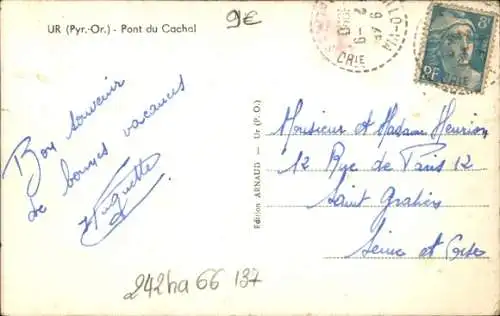 UR (Pyr.-Or.) - Pont du Cachal
9€
Bon souvenir
de bonnes vacances
Huguette
Edition ARNAUD — Ur (P. O.)
Monsieur et Madame Heurion
12 Rue de Paris 12
Saint Gratien
Seine et Oise
242ha 66 137
8F
RF
ORIE